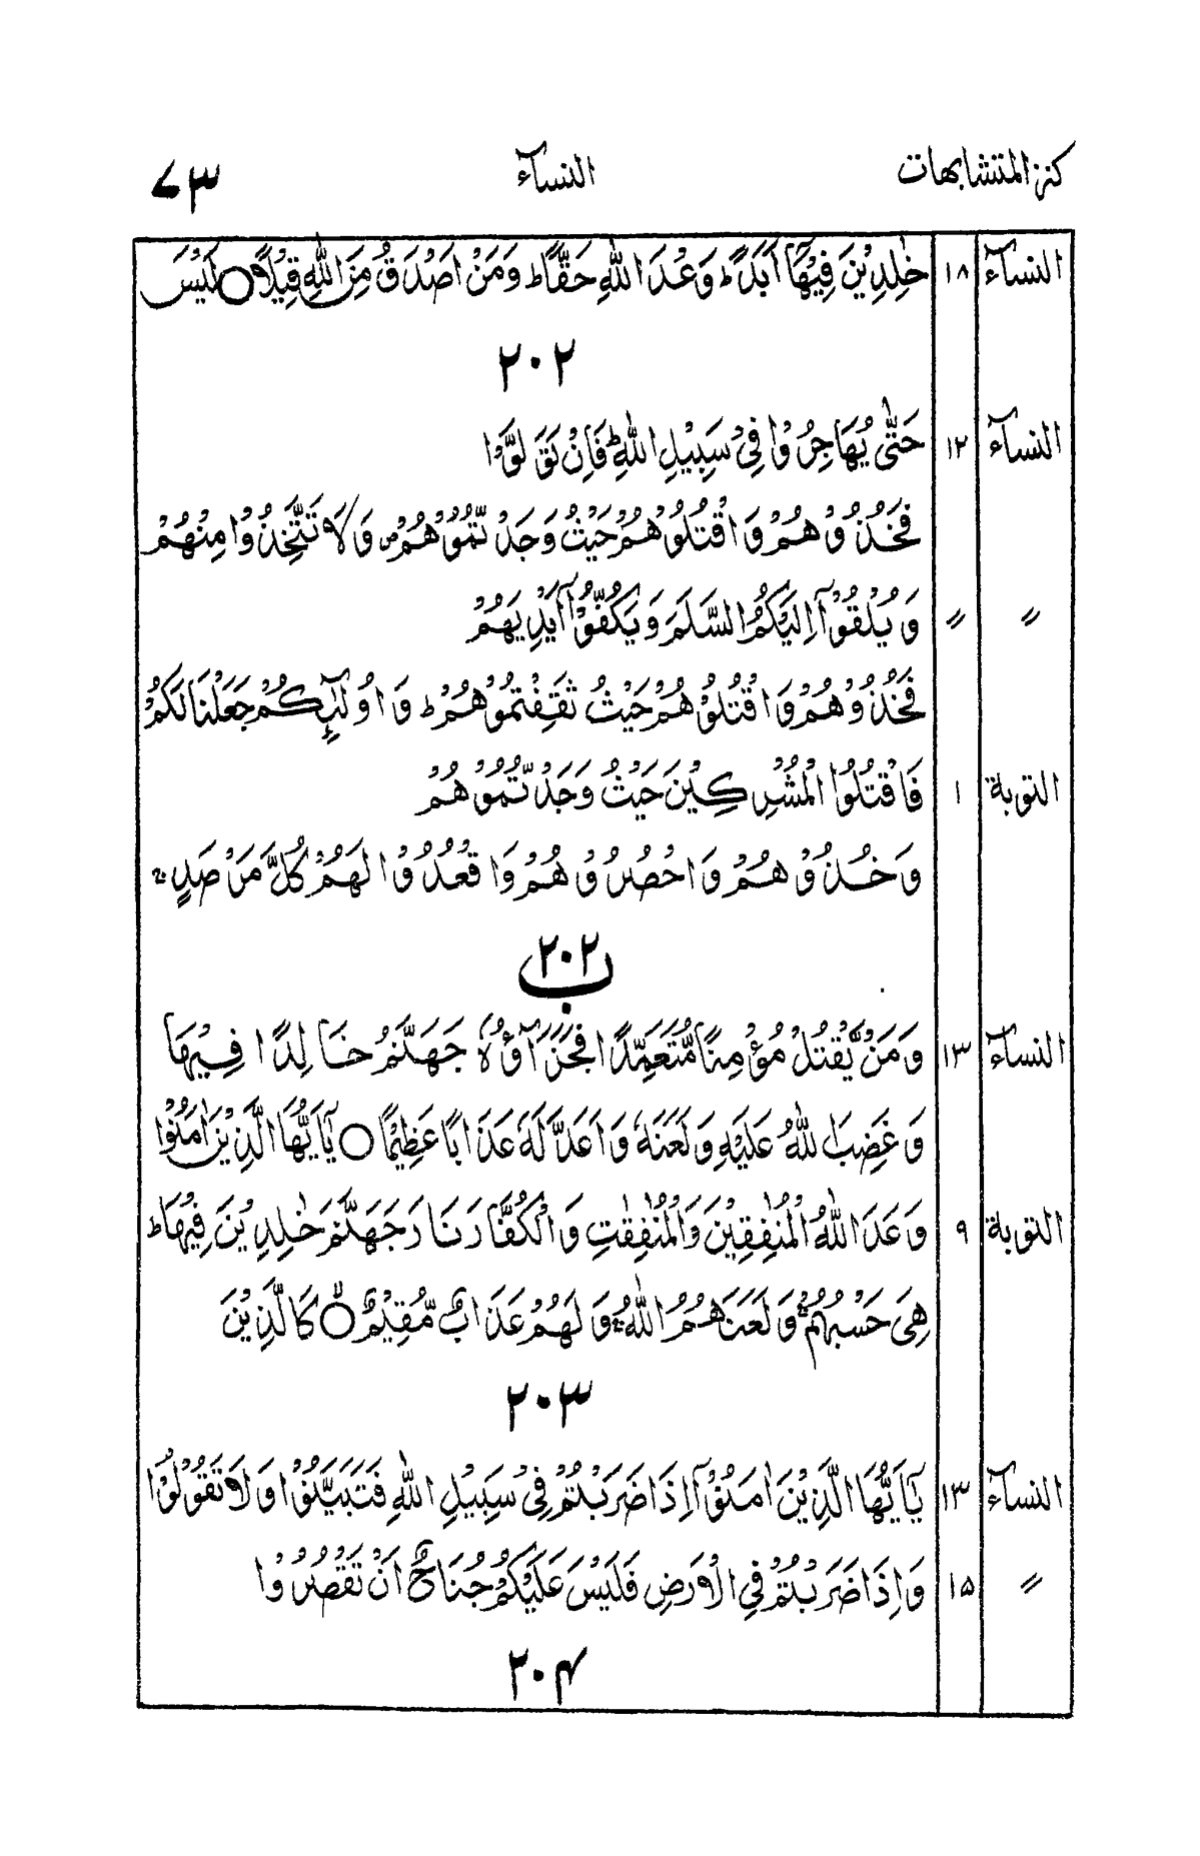 كنز المتشابهات النسآء ٧٣
النسآء ١٨ خٰلِدِيْنَ فِيْهَآ اَبَدًا ؕ وَعْدَ اللّٰهِ حَقًّا ؕ وَمَنْ اَصْدَقُ مِنَ اللّٰهِ قِيْلًا ○ لَيْسَ
٢٠٢
النسآء ١٢ حَتّٰى يُهَاجِرُوْا فِيْ سَبِيْلِ اللّٰهِ ؕ فَاِنْ تَوَلَّوْا
فَخُذُوْهُمْ وَاقْتُلُوْهُمْ حَيْثُ وَجَدْتُّمُوْهُمْ ۪ وَلَا تَتَّخِذُوْا مِنْهُمْ
〃 〃 وَيُلْقُوْٓا اِلَيْكُمُ السَّلَمَ وَيَكُفُّوْٓا اَيْدِيَهُمْ
فَخُذُوْهُمْ وَاقْتُلُوْهُمْ حَيْثُ ثَقِفْتُمُوْهُمْ ؕ وَاُولٰٓئِكُمْ جَعَلْنَا لَكُمْ
التوبة ١ فَاقْتُلُوا الْمُشْرِكِيْنَ حَيْثُ وَجَدْتُّمُوْهُمْ
وَخُذُوْهُمْ وَاحْصُرُوْهُمْ وَاقْعُدُوْا لَهُمْ كُلَّ مَرْصَدٍ ۚ
٢٠٢ ب
النسآء ١٣ وَمَنْ يَّقْتُلْ مُؤْمِنًا مُّتَعَمِّدًا فَجَزَآؤُهٗ جَهَنَّمُ خَالِدًا فِيْهَا
وَغَضِبَ اللّٰهُ عَلَيْهِ وَلَعَنَهٗ وَاَعَدَّ لَهٗ عَذَابًا عَظِيْمًا ○ يٰٓاَيُّهَا الَّذِيْنَ اٰمَنُوْٓا
التوبة ٩ وَعَدَ اللّٰهُ الْمُنٰفِقِيْنَ وَالْمُنٰفِقٰتِ وَالْكُفَّارَ نَارَ جَهَنَّمَ خٰلِدِيْنَ فِيْهَا ؕ
هِيَ حَسْبُهُمْ ۚ وَلَعَنَهُمُ اللّٰهُ ۚ وَلَهُمْ عَذَابٌ مُّقِيْمٌ ○ كَالَّذِيْنَ
٢٠٣
النسآء ١٣ يٰٓاَيُّهَا الَّذِيْنَ اٰمَنُوْٓا اِذَا ضَرَبْتُمْ فِيْ سَبِيْلِ اللّٰهِ فَتَبَيَّنُوْا وَلَا تَقُوْلُوْا
〃 ١٥ وَاِذَا ضَرَبْتُمْ فِي الْاَرْضِ فَلَيْسَ عَلَيْكُمْ جُنَاحٌ اَنْ تَقْصُرُوْا
٢٠۴